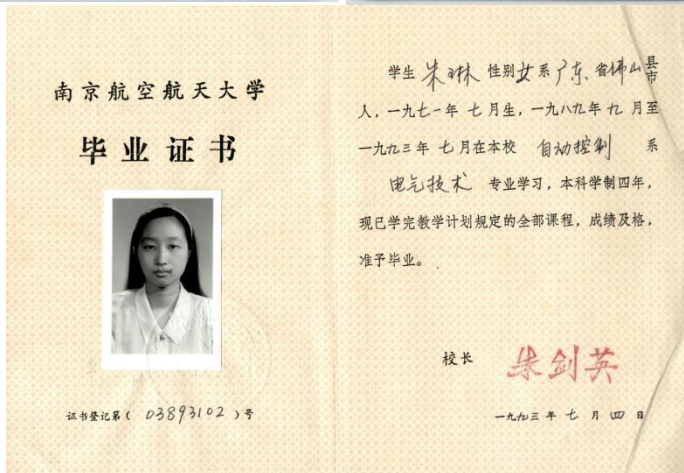 南京航空航天大学
毕业证书
证书登记第(03893102)号
学生 朱琳 性别女系广东省佛山县市
人，一九七一年七月生，一九八九年九月至
一九九三年七月在本校 自动控制 系
电气技术 专业学习，本科学制四年，
现已学完教学计划规定的全部课程，成绩及格，
准予毕业。
校长 朱剑英
一九九三年七月四日